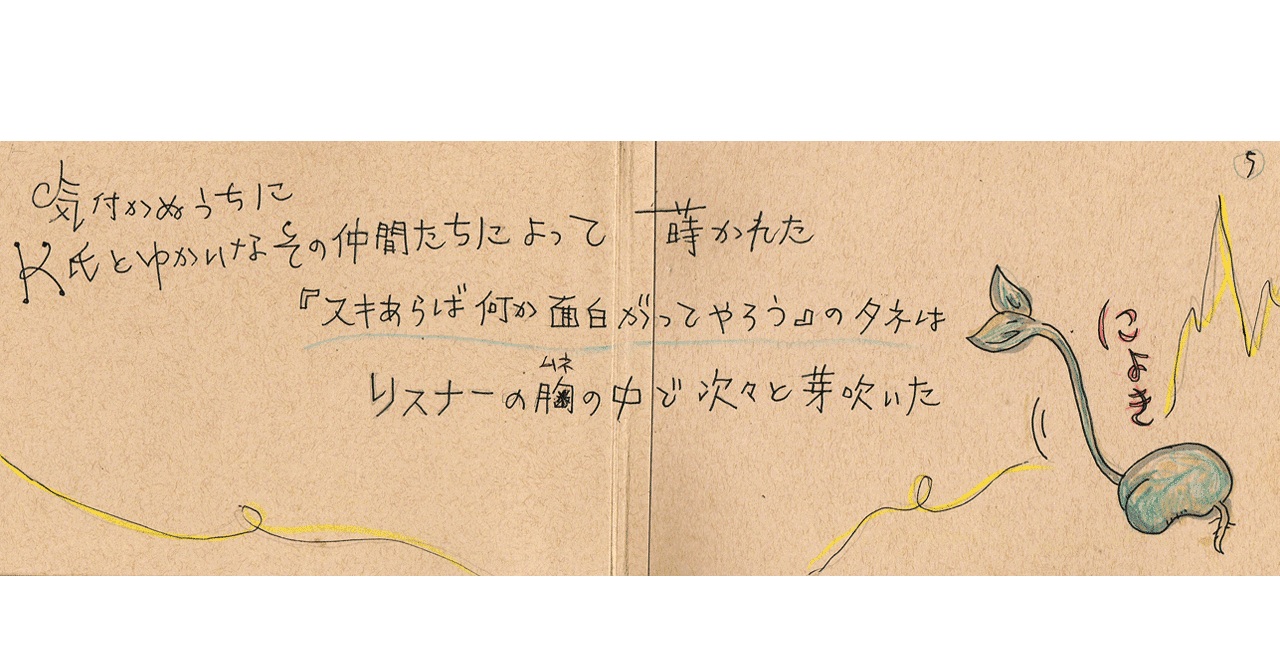 気付かぬうちに
K氏とゆかいなその仲間たちによって 蒔かれた
『スキあらば何か面白がってやろう』のタネは
ムネ
リスナーの胸の中で次々と芽吹いた
にょき
5